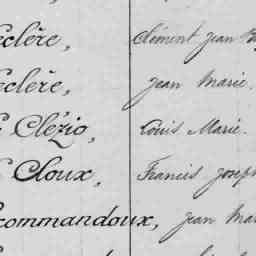 eclère, Clément Jean
eclère, Jean Marie.
Clézio, Louis Marie.
Cloux, Francis Joseph
commandoux, Jean Mar